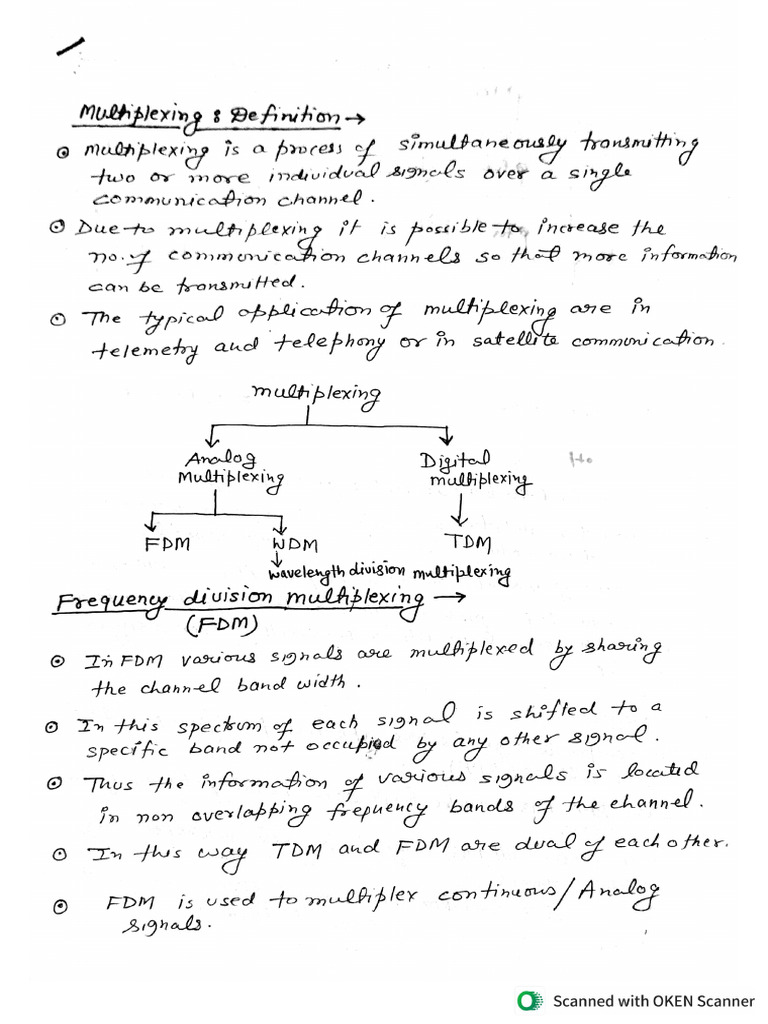 Multiplexing : Definition →
⊙ Multiplexing is a process of simultaneously transmitting
two or more individual signals over a single
communication channel.
⊙ Due to multiplexing it is possible to increase the
no. of communication channels so that more information
can be transmitted.
⊙ The typical application of multiplexing are in
telemetry and telephony or in satellite communication.
multiplexing
Analog Digital
Multiplexing multiplexing
FDM WDM TDM
wavelength division multiplexing
Frequency division multiplexing →
(FDM)
⊙ In FDM various signals are multiplexed by sharing
the channel band width.
⊙ In this spectrum of each signal is shifted to a
specific band not occupied by any other signal.
⊙ Thus the information of various signals is located
in non overlapping frequency bands of the channel.
⊙ In this way TDM and FDM are dual of each other.
⊙ FDM is used to multiplex continuous/Analog
signals.
Scanned with OKEN Scanner